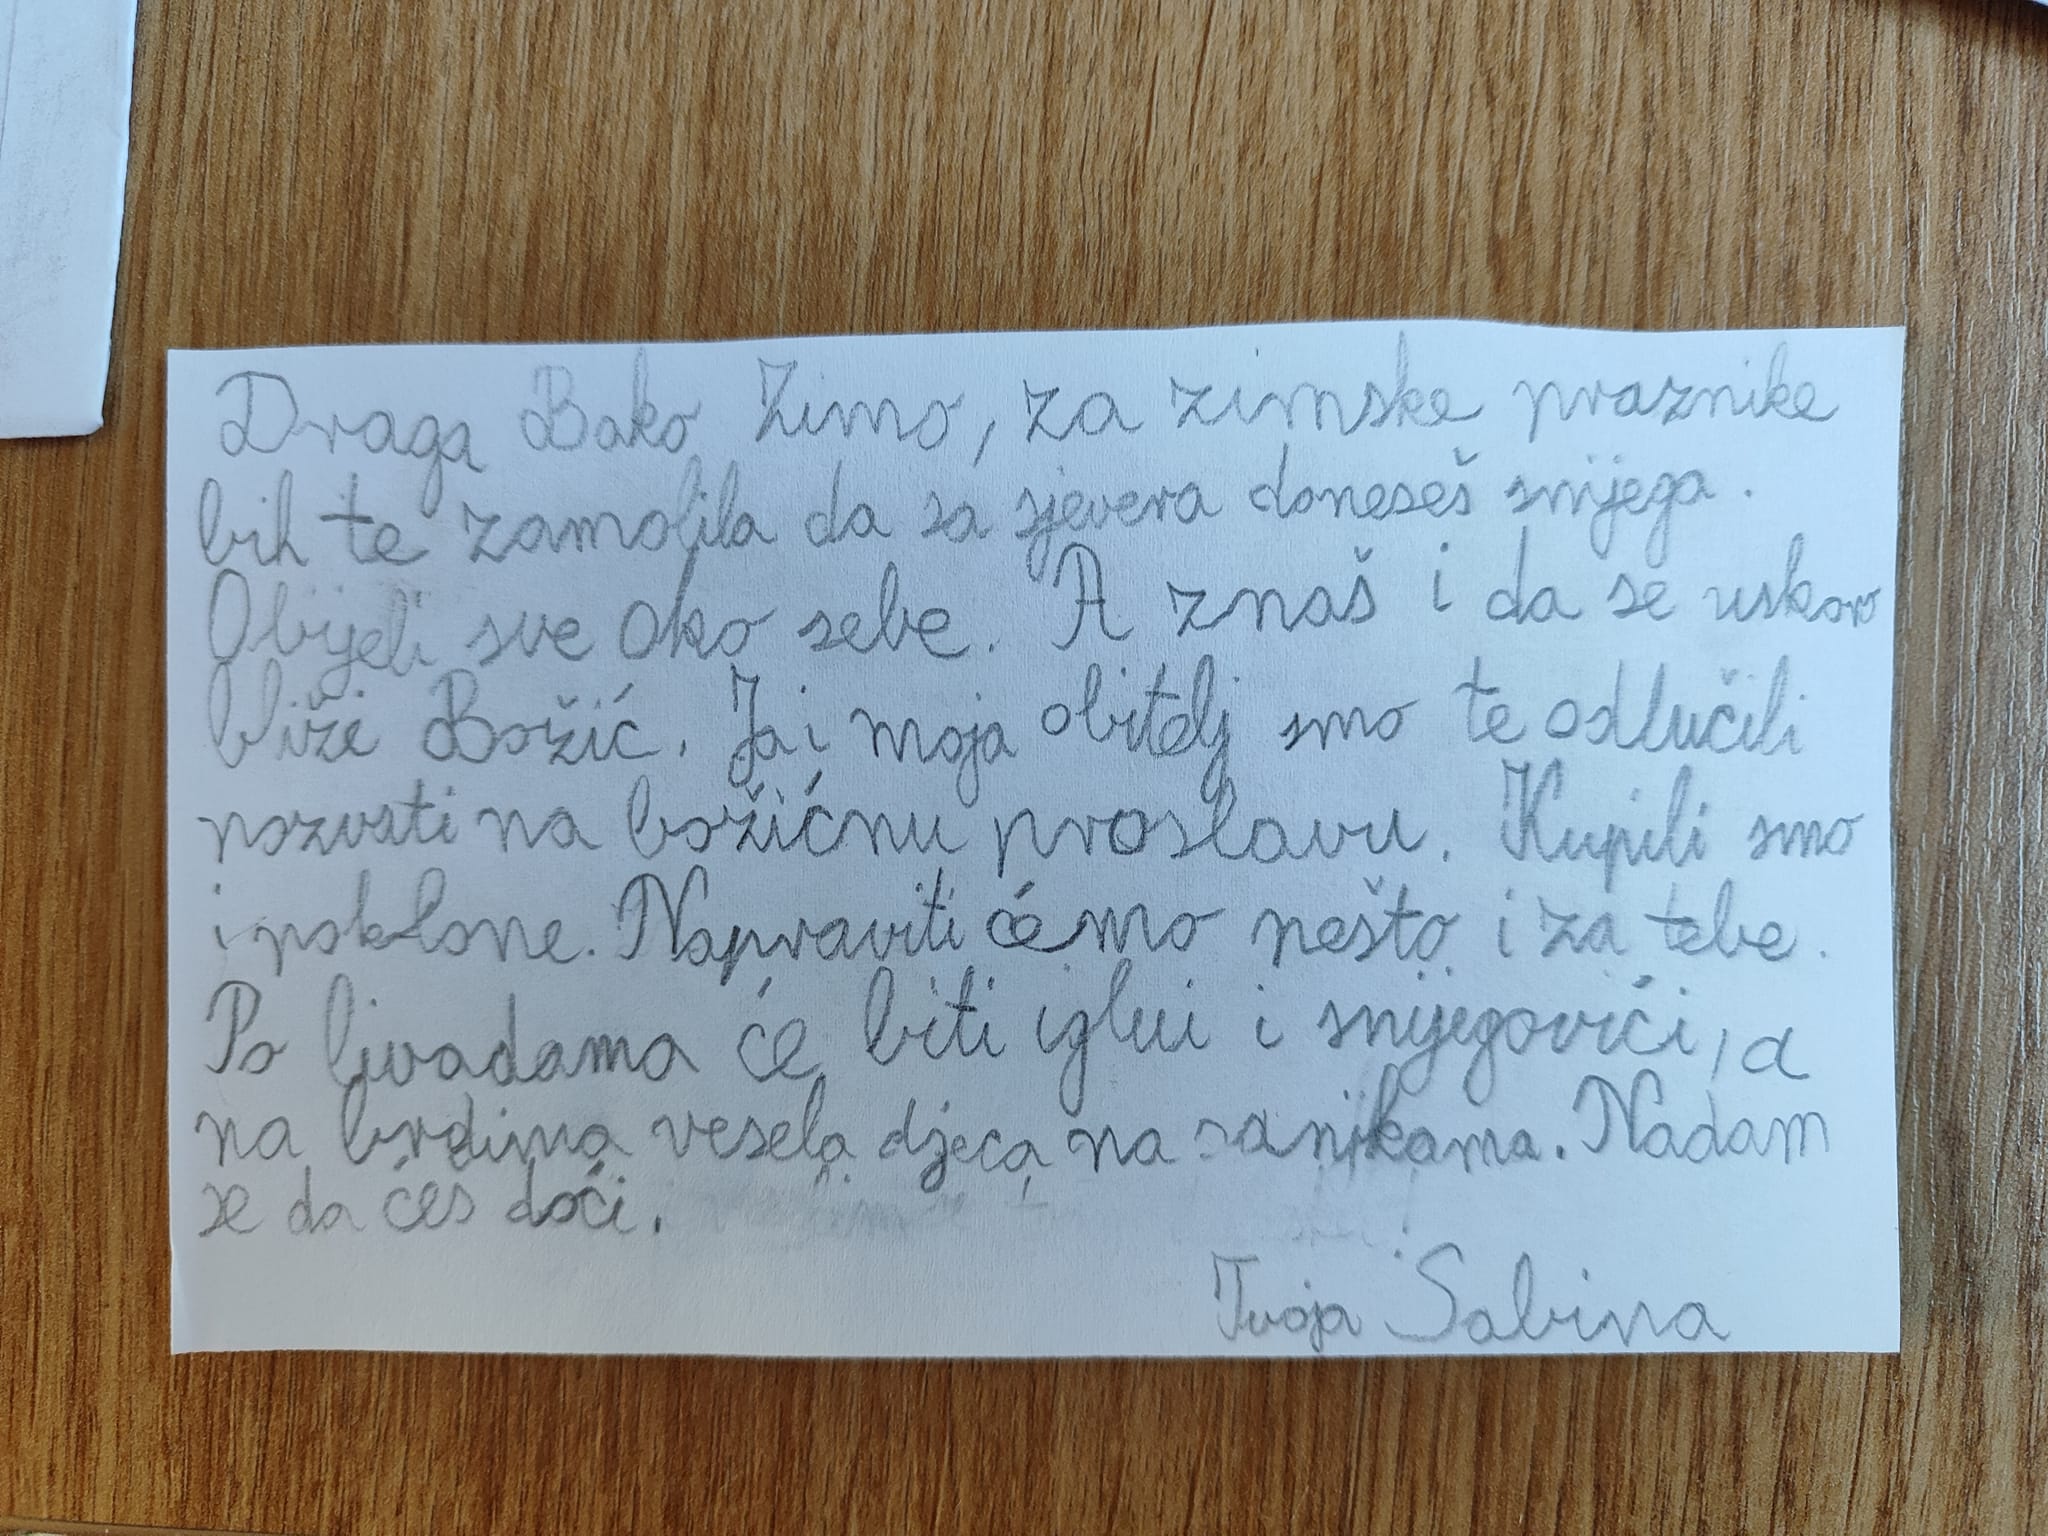 Draga Bako Zimo, za zimske praznike
bih te zamolila da sa sjevera doneseš snijega.
Obijeli sve oko sebe. A znaš i da se uskoro
bliže Božić. Ja i moja obitelj smo te odlučili
pozvati na božićnu proslavu. Kupili smo
i poklone. Napraviti ćemo nešto i za tebe.
Po livadama će biti iglui i snijegovići, a
na brdima vesela djeca na sanjkama. Nadam
se da ćeš doći.
Tvoja Sabina